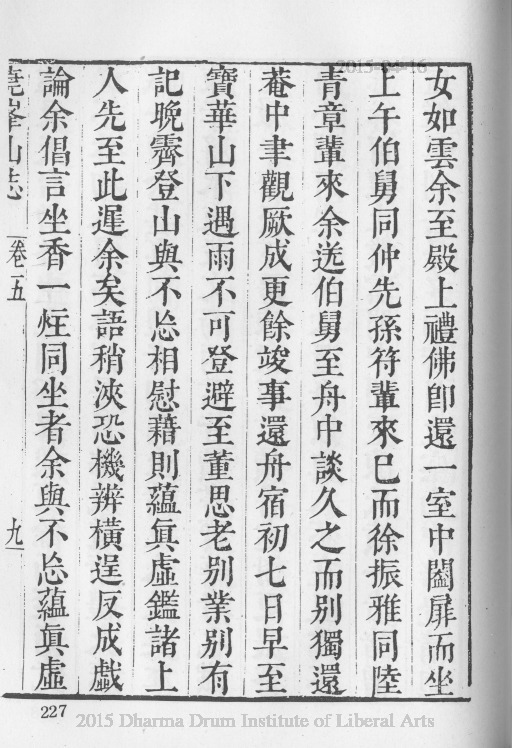 女如雲余至殿上禮佛卽還一室中闔扉而坐
上午伯舅同仲先孫符輩來已而徐振雅同陸
青章輩來余送伯舅至舟中談久之而別獨還
菴中聿觀厥成更餘竣事還舟宿初七日早至
寶華山下遇雨不可登避至董思老別業別有
記晚霽登山與不忩相慰藉則蘊眞虛鑑諸上
人先至此遲余矣語稍浹恐機辨橫逞反成戲
論余倡言坐香一炷同坐者余與不忩蘊眞虛
堯峯山志 卷五 九
227
2015-04-16
2015 Dharma Drum Institute of Liberal Arts